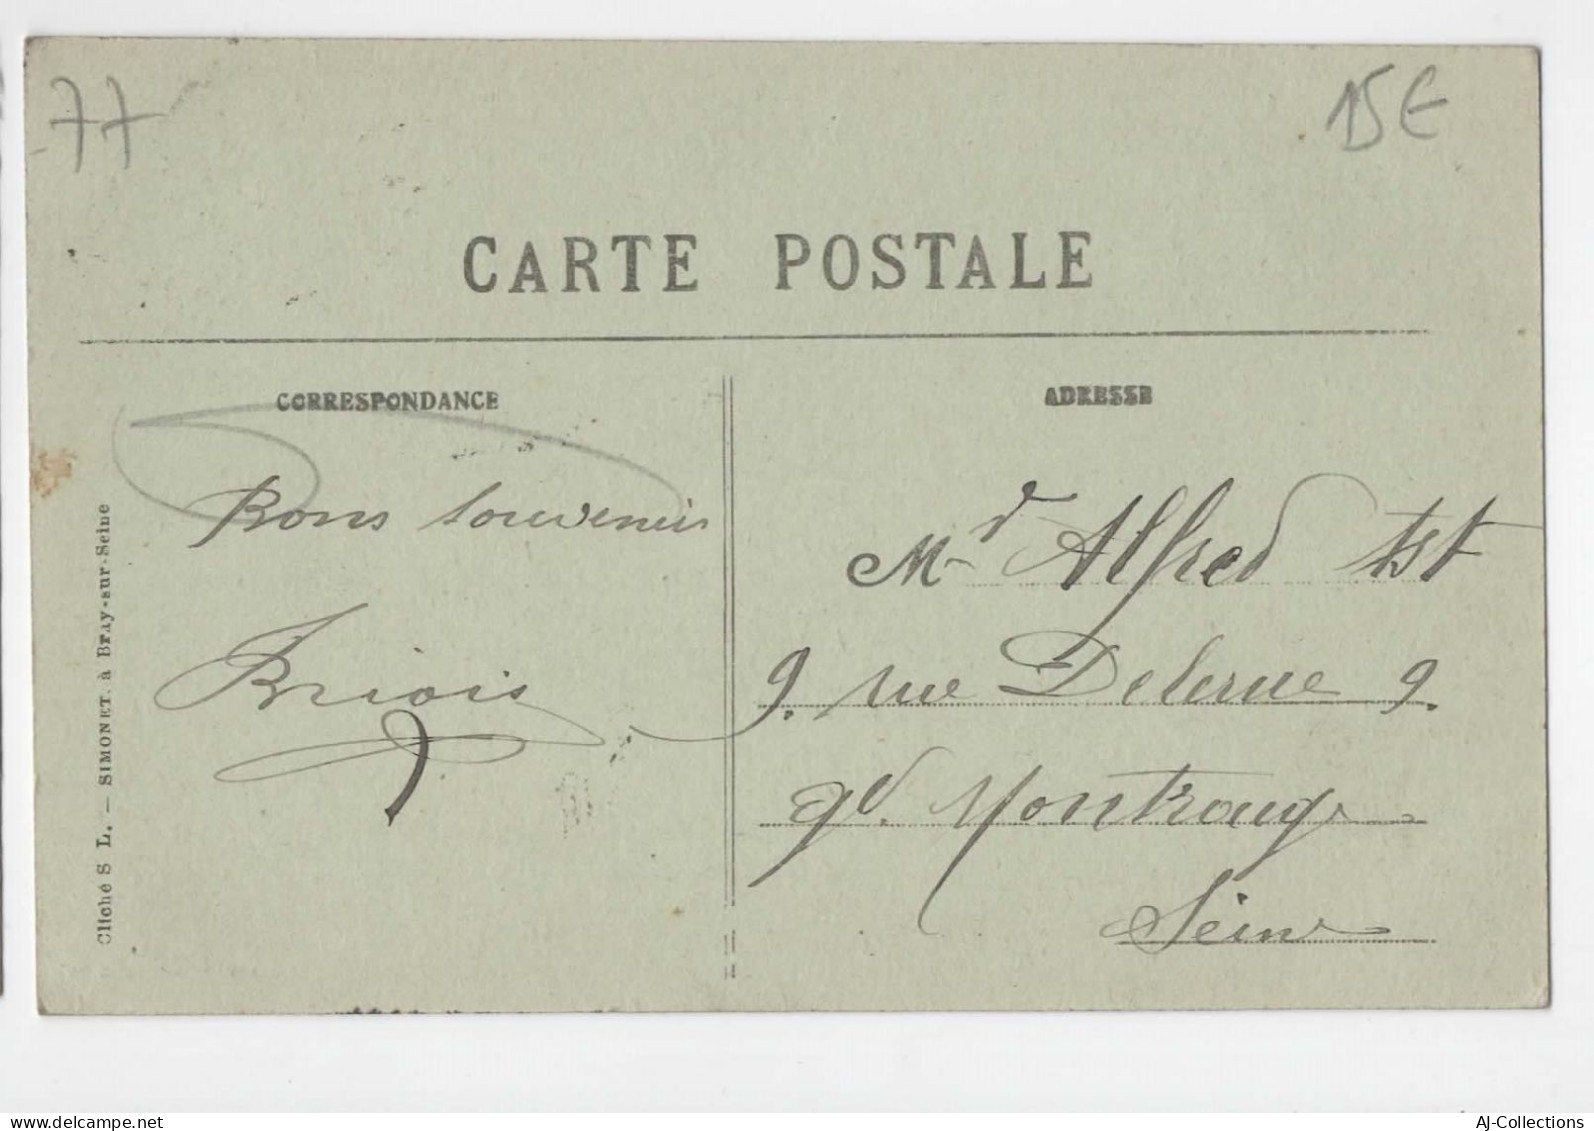 77
15€
CARTE POSTALE
CORRESPONDANCE
ADRESSE
Bons souvenirs
Briois
Mr Alfred
9. rue Delerue 9.
gd. Montrouge
Seine
Cliché S L. — SIMONET, à Bray-sur-Seine
www.delcampe.net
AJ-Collections